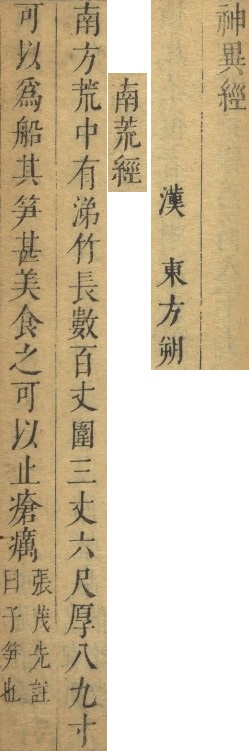 神異經
漢　東方朔
南荒經
南方荒中有涕竹長數百丈圍三丈六尺厚八九寸
可以爲船其笋甚美食之可以止瘡癘
張茂先註
曰子笋也